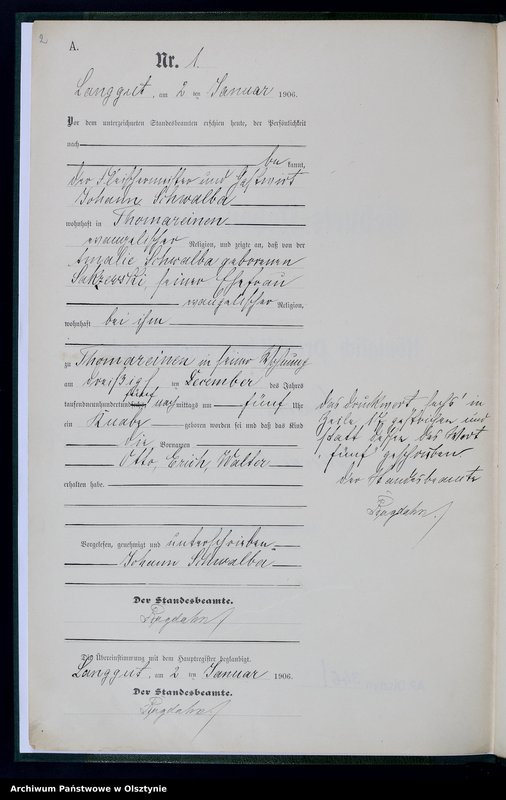 2
A.
Nr. 1.
Langgut, am 2ten Januar 1906.
Vor dem unterzeichneten Standesbeamten erschien heute, der Persönlichkeit
nach
bekannt,
der Fleischermeister und Gastwirt
Johann Schwalba
wohnhaft in Thomareinen
evangelischer Religion, und zeigte an, daß von der
Amalie Schwalba geborenen
Sakrzewski, seiner Ehefrau
evangelischer Religion,
wohnhaft bei ihm
zu Thomareinen in seiner Wohnung
am dreißigsten Dezember des Jahres
tausendneunhundertfünf nachmittags um fünf Uhr
ein Knabe geboren worden sei und daß das Kind
die Vornamen
Otto, Erich, Walter
erhalten habe.
das Druckwort „sechs" in
Zeile 14 gestrichen und
statt dessen das Wort
„fünf" geschrieben
der Standesbeamte
Vorgelesen, genehmigt und unterschrieben
Johann Schwalba
Der Standesbeamte.
Die Übereinstimmung mit dem Hauptregister beglaubigt.
Langgut, am 2ten Januar 1906.
Der Standesbeamte.
Archiwum Państwowe w Olsztynie